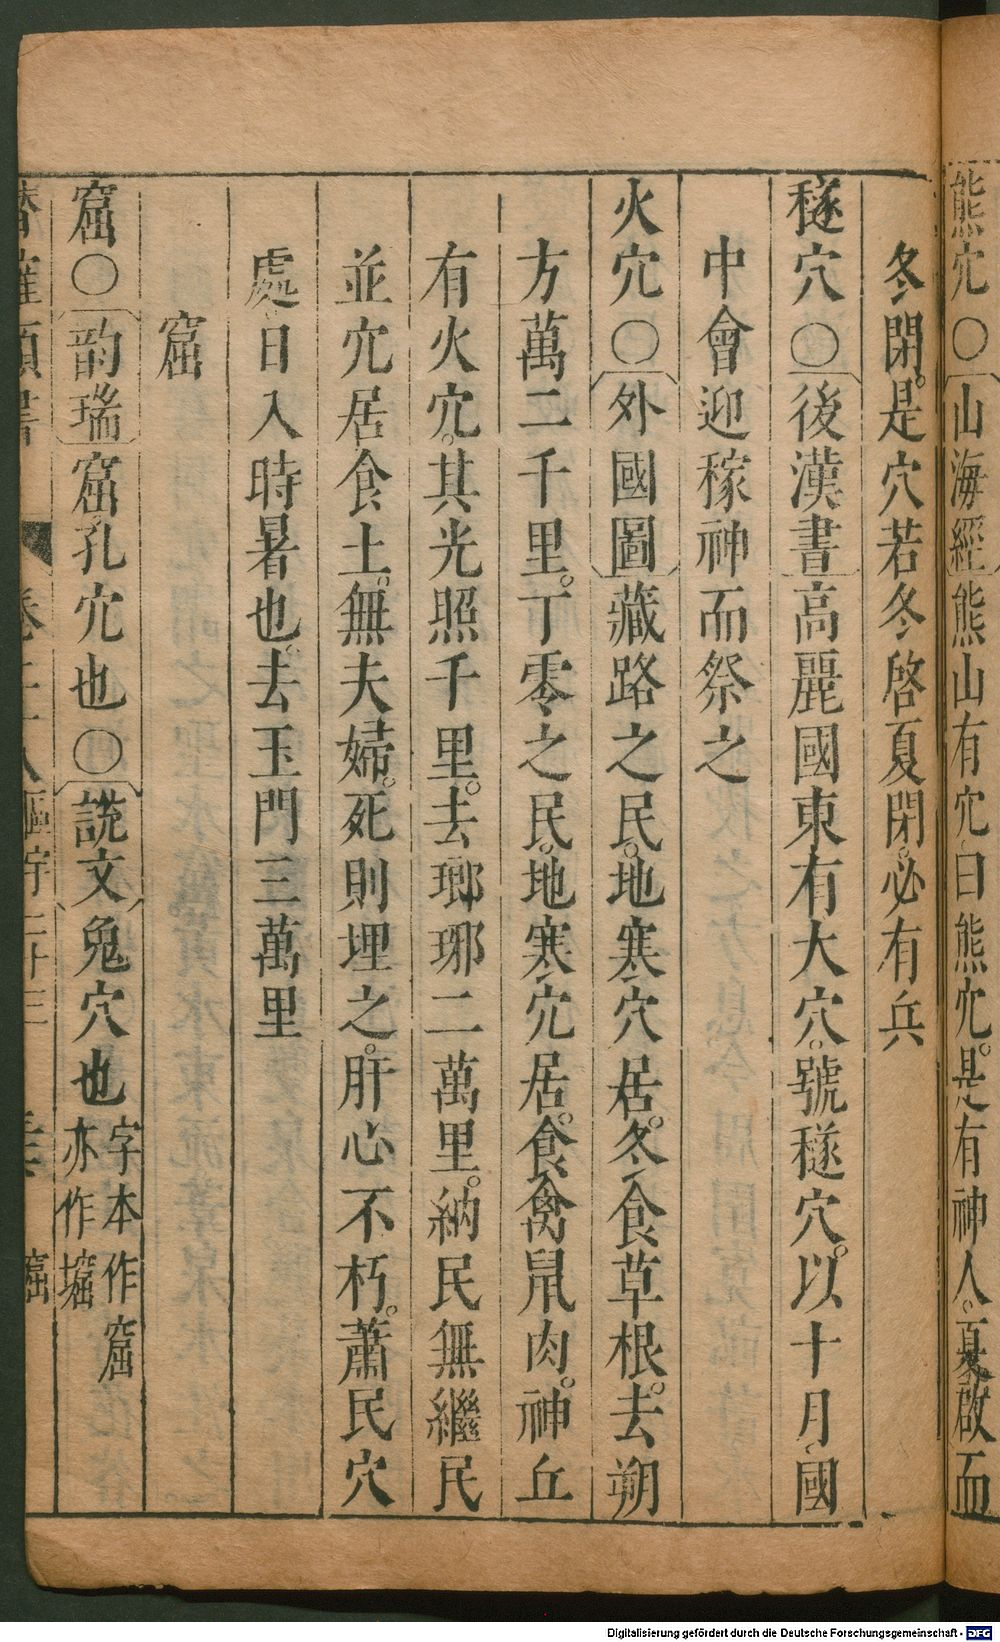 熊穴○山海經熊山有穴曰熊穴。是有神人。夏啟而
冬閉。是穴若冬啓夏閉。必有兵
𥠂穴○後漢書高麗國東有大穴。號𥠂穴。以十月國
中會迎稼神而祭之
火穴○外國圖藏路之民。地寒穴居。冬食草根。去朔
方萬二千里。丁零之民。地寒穴居。食禽鼠肉。神丘
有火穴。其光照千里。去瑯琊二萬里。納民無繼民
並穴居食土。無夫婦。死則埋之。肝心不朽。蕭民穴
處日入時暑也。去玉門三萬里
窟
窟○韵瑞窟孔穴也○說文兔穴也字本作窟
亦作堀
窟
Digitalisierung gefördert durch die Deutsche Forschungsgemeinschaft - DFG